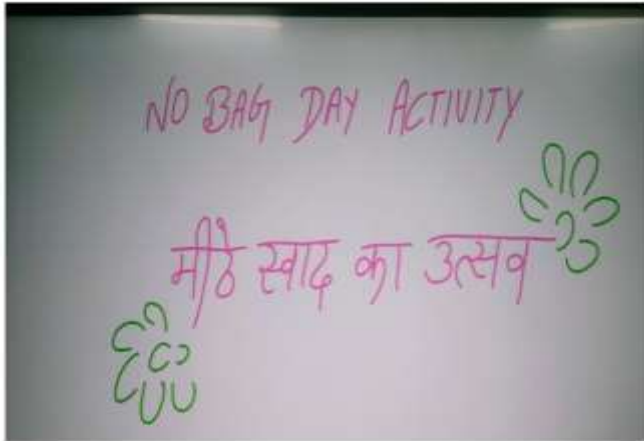 NO BAG DAY ACTIVITY
मीठे स्वाद का उत्सव